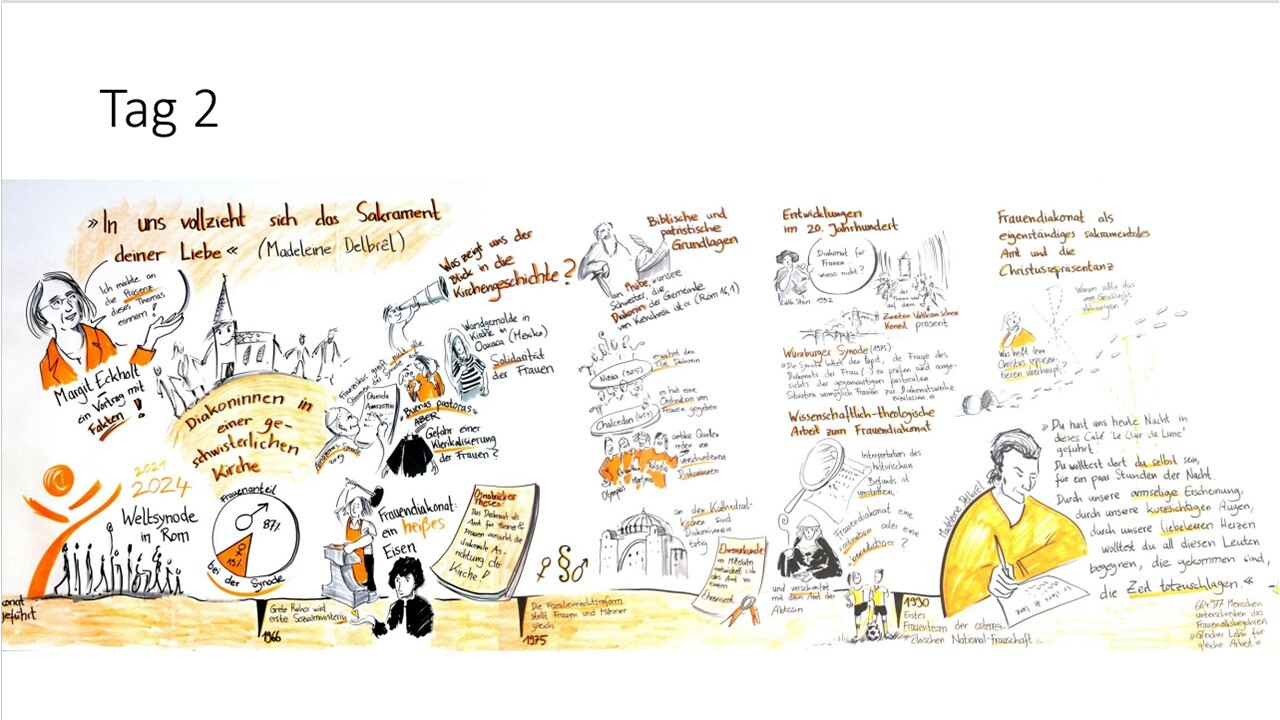 Tag 2
»In uns vollzieht sich das Sakrament
deiner Liebe« (Madeleine Delbrêl)
Ich möchte an
die Präsenz
dieses Themas
erinnern!
Margit Eckholt
ein Vortrag mit
Fakten!
Diakoninnen in
einer ge-
schwisterlichen
Kirche
2021
2024
Weltsynode
in Rom
Frauenanteil
87%
13%
bei der Synode
Was zeigt uns der
Blick in die
Kirchengeschichte?
Wandgemälde in
Kirche in
Oaxaca (Mexiko)
Solidarität
der Frauen
"Buenas pastoras"
ABER
Gefahr einer
Klerikalisierung
der Frauen?
Frauendiakonat:
ein heißes
Eisen
Osnabrücker
Thesen
Das Diakonat als
Amt für Männer &
Frauen
diakonale Aus-
richtung der
Kirche!
Biblische und
patristische
Grundlagen
unsere
Schwester, die
Diakonin der Gemeinde
von Kenchreä ist« (Röm 16,1)
Nizäa (325)
erwähnt den
Chalcedon (451)
es hat eine
Ordination von
Frauen gegeben
antike Quellen
reden von
verschiedenen
Diakoninnen
Olympias
an den Kathedral-
kirchen sind
Diakoninnen
tätig
Ehrenurkunde
im Mittelalter
entwickelt sich
das Amt zu
einem
Ehrenamt
Entwicklungen
im 20. Jahrhundert
Diakonat für
Frauen -
wieso nicht?
Edith Stein 1932
auf dem
Zweiten Vatikanischen
Konzil präsent
Würzburger Synode (1975):
»Die Synode bittet den Papst, die Frage des
Diakonats der Frau (...) zu prüfen und ange-
sichts der gegenwärtigen pastoralen
Situation womöglich Frauen zur Diakonatsweihe
zuzulassen.«
Wissenschaftlich-theologische
Arbeit zum Frauendiakonat
Interpretation des
historischen
Befunds ist
umstritten.
Frauendiakonat eine
Ordination oder eine
und verschmilzt
mit dem Amt der
Äbtissin
Frauendiakonat als
eigenständiges sakramentales
Amt und die
Christusrepräsentanz
Warum sollte das
vom Geschlecht
abhängen?
Was heißt denn
Christus repräsen-
tieren überhaupt?
Madeleine Delbrêl
»Du hast uns heute Nacht in
dieses Café 'Le Clair de Lune'
geführt.
Du wolltest dort du selbst sein,
für ein paar Stunden der Nacht.
Durch unsere armselige Erscheinung,
durch unsere kurzsichtigen Augen,
durch unsere liebeleeren Herzen
wolltest du all diesen Leuten
begegnen, die gekommen sind,
die Zeit totzuschlagen.«
geführt
Grete Rehor wird
erste Sozialministerin
1966
Die Familienrechtsreform
stellt Frauen und Männer
gleich
1975
1990
Erstes
Frauenteam der österrei-
chischen National-Mannschaft
664.977 Menschen
unterschreiben das
Frauenvolksbegehren
»Gleicher Lohn für
gleiche Arbeit«